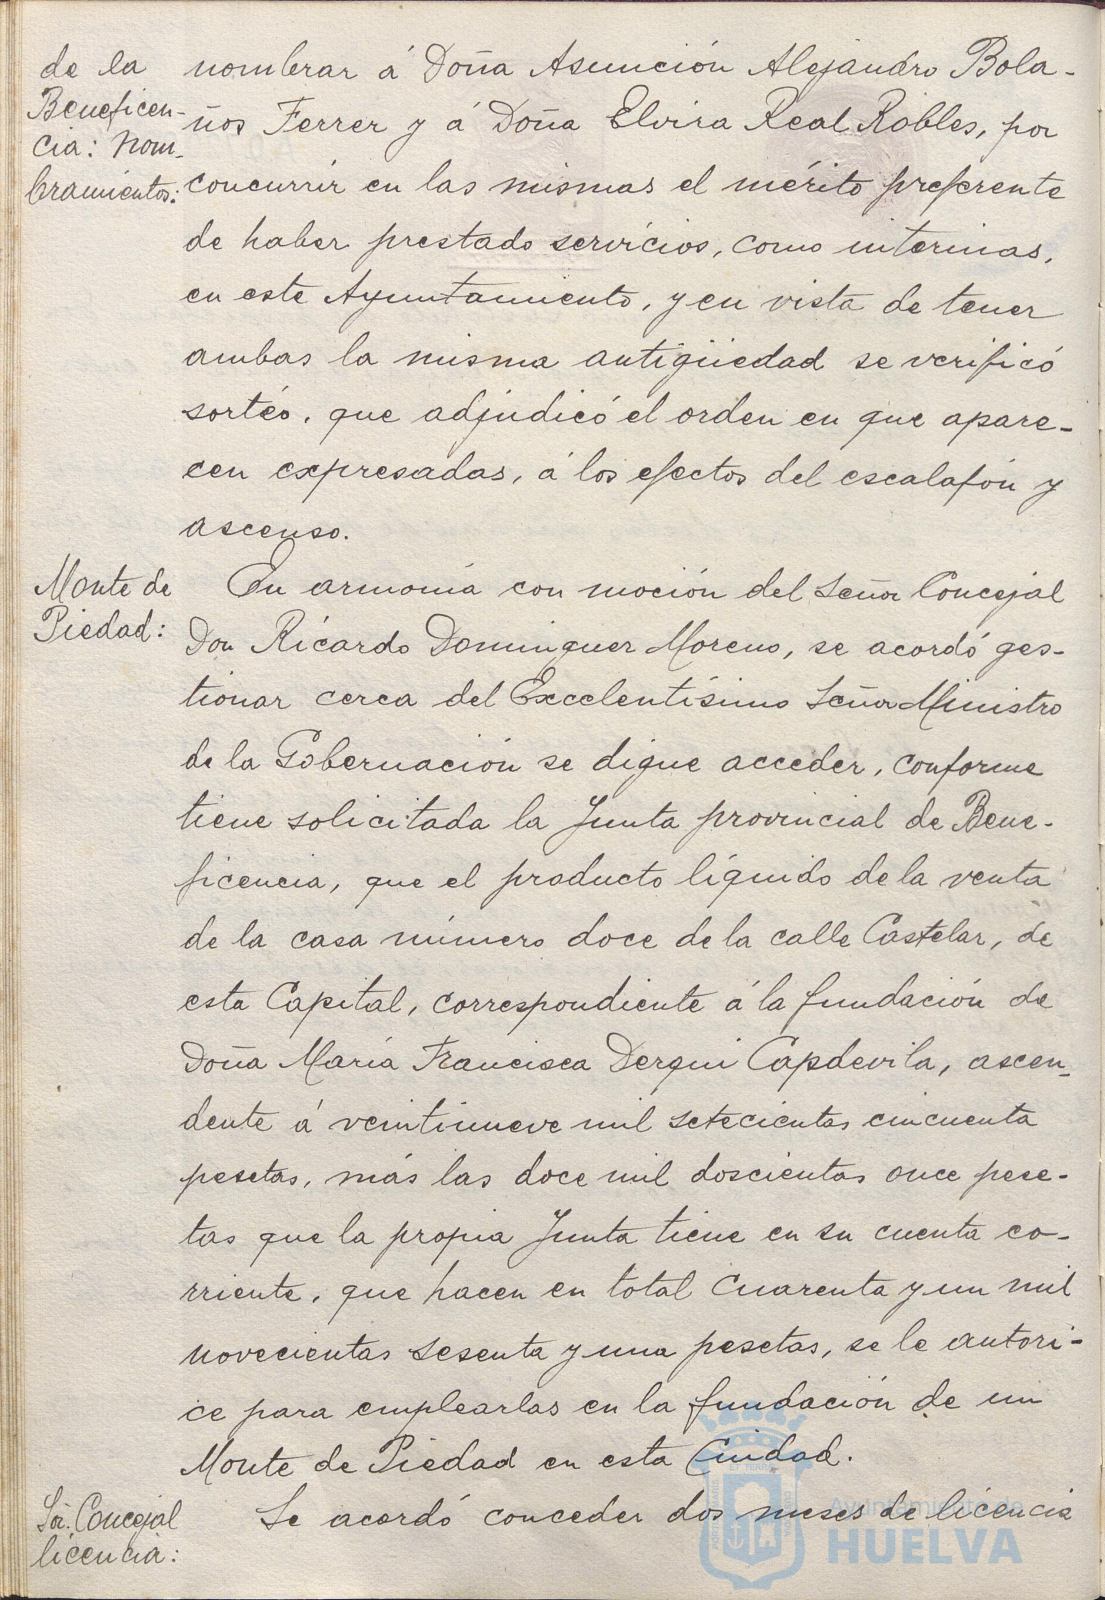 de la
Beneficen-
cia: Nom-
bramientos:
nombrar á Doña Asunción Alejandro Bola-
ños Ferrer y á Doña Elvira Real Robles, por
concurrir en las mismas el mérito preferente
de haber prestado servicios, como interinas,
en este Ayuntamiento, y en vista de tener
ambas la misma antigüedad se verificó
sortéo, que adjudicó el orden en que apare-
cen expresadas, á los efectos del escalafón y
ascenso.
Monte de
Piedad:
En armonía con moción del Señor Concejal
Don Ricardo Dominguez Moreno, se acordó ges-
tionar cerca del Excelentísimo Señor Ministro
de la Gobernación se digne acceder, conforme
tiene solicitada la Junta provincial de Bene-
ficencia, que el producto líquido de la venta
de la casa número doce de la calle Castelar, de
esta Capital, correspondiente á la fundación de
Doña María Francisca Derqui Capdevila, ascen-
dente á veintinueve mil setecientas cincuenta
pesetas, más las doce mil doscientas once pese-
tas que la propia Junta tiene en su cuenta co-
rriente, que hacen en total cuarenta y un mil
novecientas sesenta y una pesetas, se le autori-
ce para emplearlas en la fundación de un
Monte de Piedad en esta Ciudad.
Sör. Concejal
licencia:
Se acordó conceder dos meses de licencia
Ayuntamiento de
HUELVA